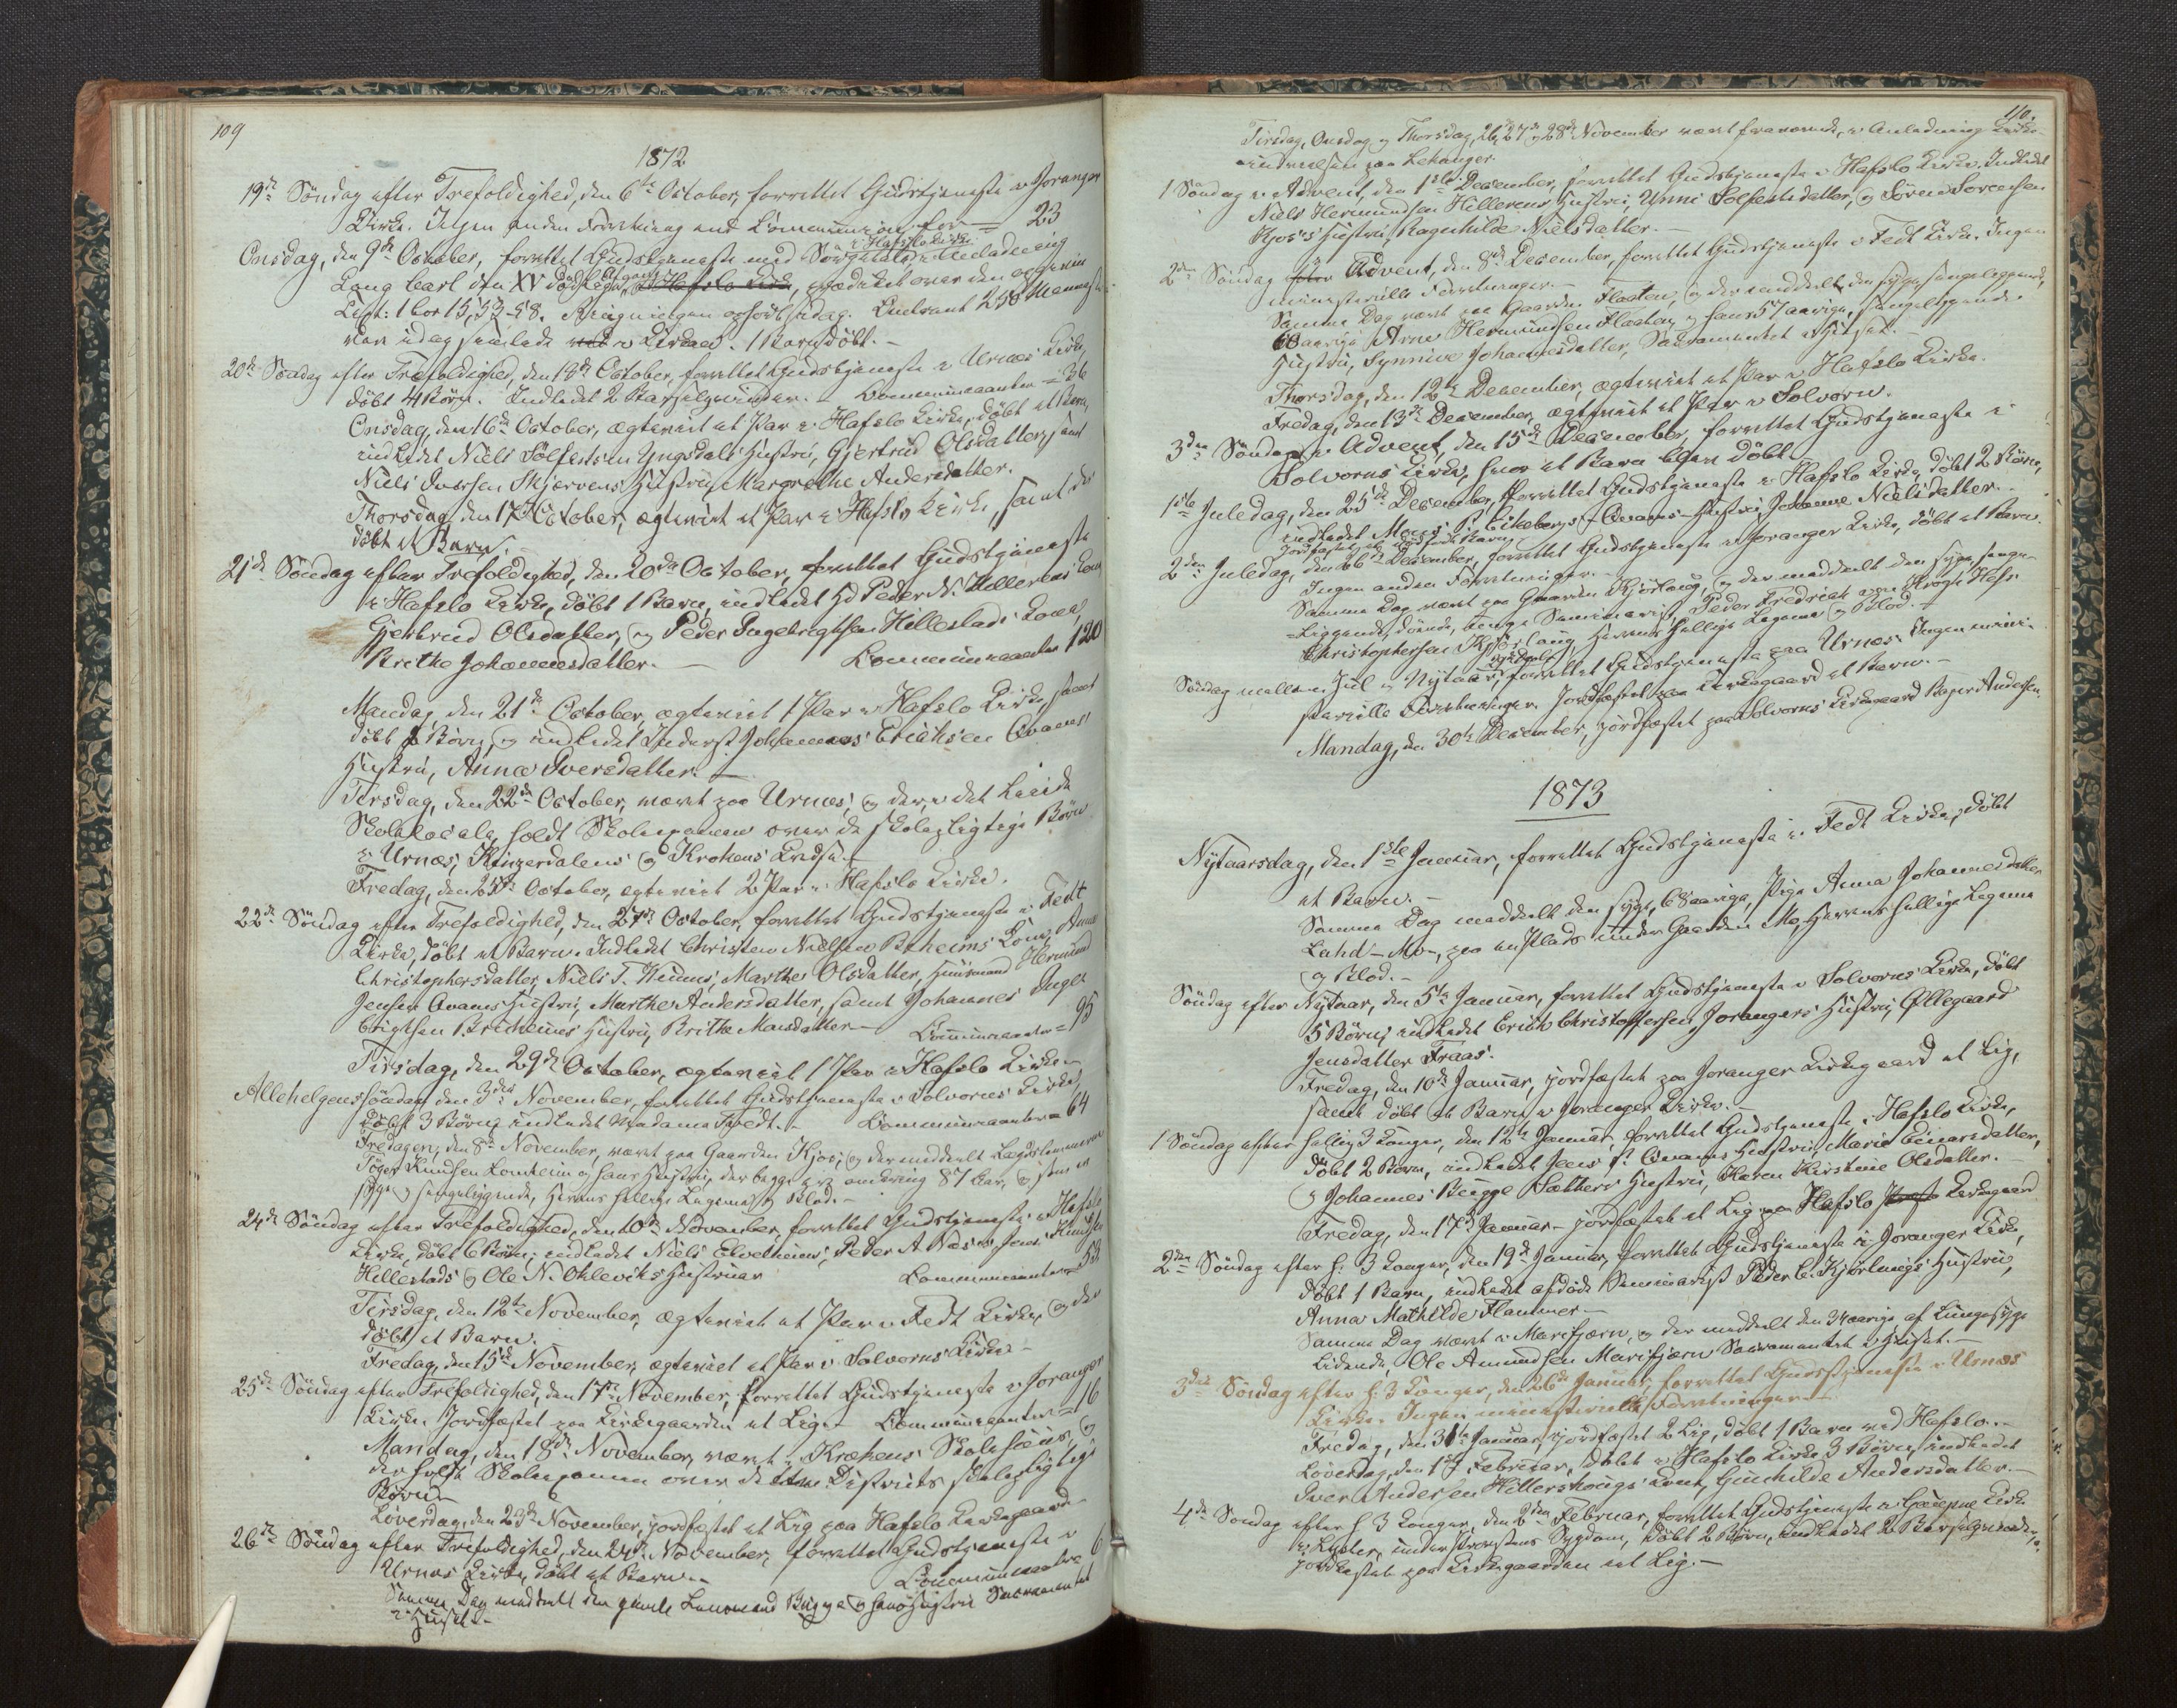 109
1872
19de Söndag efter Trefoldighed, den 6te October, forrettet Gudstjeneste i Joranger
Kirke. Ingen anden Forretning end Communion for = 23
Onsdag, den 9de October, forrettet Gudstjeneste med Sörgetale i Hafslo Kirke i Anledning
Kong Carl den XV Dödsfald, prædiket over den opgivne
Text: 1 Cor 15, 53-58. Omtrent 250 Mennesker
var idag samlede i Kirken. 1 Barn döbt.-
20de Söndag efter Trefoldighed, den 13de October, forrettet Gudstjeneste i Urnæs Kirke,
döbt 4 Börn. Indledet 2 Barselqvinder. - Communicanter = 36
Onsdag, den 16de October, ægteviet et Par i Hafslo Kirke, döbt et Barn,
indledet Niels Solfestsen Yngsdals Hustru, Gjertrud Olsdatter, samt
Niels Iversen Skjervens Hustru, Margrethe Andersdatter.
Thorsdag, den 17de October, ægteviet et Par i Hafslo Kirke, samt der
döbt et Barn.
21de Söndag efter Trefoldighed, den 20de October, forrettet Gudstjeneste
i Hafslo Kirke, döbt 1 Barn, indledet Peder N. Hillerens Kone
Gjertrud Olsdatter, og Peder Ingebrigtsen Hillestads Kone,
Brithe Johannesdatter. - Communicanter 120
Mandag, den 21de October, ægteviet 1 Par i Hafslo Kirke, samt
döbt Börn, og indledet Inderst Johannes Erichsen Qvams
Hustru, Anna Iversdatter. -
Tirsdag, den 22de October, været paa Urnæs, og der, i det leiede
Skolelocale, holdt Skoleexamen over de skolepligtige Börn
i Urnæs, Kinserdalens og Krokens Kredse.-
Fredag, den 25de October, ægteviet 2 Par i Hafslo Kirke.
22de Söndag efter Trefoldighed, den 27de October, forrettet Gudstjeneste i Fedt
Kirke, döbt et Barn. Indledet Christen Nielsen Beheims Kone, Anna
Christophersdatter, Niels T. Marthe Olsdatter, Huusmand Hermund
Jensen Qvams Hustru, Marthe Andersdatter, samt Johannes Inge-
brigtsen Hustru, Brithe Monsdatter - Communicanter = 95
Tirsdag, den 29de October, ægteviet 1 Par i Hafslo Kirke.
Allehelgenssöndag den 3die November, forrettet Gudstjeneste i Solvorns Kirke,
döbt 3 Börn, indledet Madame Tvedt. - Communicanter = 64
Fredagen, den 8de November, været paa Gaarden Kjos, og der meddeelt Lægdslemmerne
Töger Knudsen Lomheim og hans Hustru, der begge ere omkring 87 Aar, og
syge og sengeliggende, Herrens hellige Legeme og Blod. -
24de Söndag efter Trefoldighed, den 10de November, forrettet Gudstjeneste i Hafslo
Kirke, döbt 6 Börn; indledet Niels Elvetheims, Peder A Næs Jens Knudsen
Hillestads og Ole N. Ohleviks Hustruer Communicanter = 53
Tirsdag, den 12te November, ægteviet et Par i Fedt Kirke, og der
döbt et Barn.
Fredag, den 15de November, ægteviet et Par i Solvorns Kirke -
25de Söndag efter Trefoldighed, den 17de November, forrettet Gudstjeneste i Joranger
Kirke. Jordfæstet paa Kirkegaarden et Lig. - Communicanter = 16
Mandag, den 18de November, været i Krokens Skolehuus, og
der holdt Skoleexamen over dette Districts skolepligtige
Börn.-
Löverdag, den 23de November, jordfæstet et Lig paa Hafslo Kirkegaard.
26de Söndag efter Trefoldighed, den 24de November, forrettet Gudstjeneste i
Urnæs Kirke, döbt et Barn. - Communicanter 6
Samme Dag meddeelt den gamle Lensmand Bugge og hans Hustru Sacramentet
i Huset. -
110.
Tirsdag, Onsdag og Thorsdag, 26, 27de og 28de November været fraværende, i Anledning Kirke-
indvielsen paa Lekanger.
1 Söndag i Advent, den 1ste December, forrettet Gudstjeneste i Hafslo Kirke. Indledet
Niels Hermundsen Hillerens Hustru, Unni Solfestsdatter, og Sören Sorensen
Kjos's Hustru, Ragnhilde Nielsdatter. -
2den Söndag i Advent, den 8de December, forrettet Gudstjeneste i Fedt Kirke. Ingen
ministerielle Forretninger.
Samme Dag været paa Gaarden Flaaten, og der meddeelt den syge, sengeliggende,
68aarige Arne Hermundsen Flaaten, og hans 57aarige, sengeliggende
Hustru, Synnive Johannesdatter, Sacramentet i Huset. -
Thorsdag, den 12te December, ægteviet et Par i Hafslo Kirke.
Fredag, den 13de December, ægteviet et Par i Solvorn.
3die Söndag i Advent, den 15de December, forrettet Gudstjeneste i
Solvorns Kirke, hvor et Barn blev döbt.
1ste Juledag, den 25de December, forrettet Gudstjeneste i Hafslo Kirke, döbt 2 Börn,
indledet Moens P. Eikebergs - Qvams - Hustru Johanne Nielsdatter. -
Jordfæstet et dödfödt Barn.
2den Juledag, den 26de December, forrettet Gudstjeneste i Joranger Kirke, döbt et Barn.
Ingen anden Forretninger. -
Samme Dag været paa Gaarden Kjörlaug, og der meddeelt den syge, senge-
liggende, döende, unge Seminarist, Peder Fredrik von Krogh Hefr
Christophersen Kjörlaug Herrens hellige Legeme og Blod. -
Söndag mellem Jul og Nytaar, forrettet Gudstjeneste paa Urnæs. Ingen mini-
sterielle Forretninger. Jordfæstet paa Kirkegaard et Barn. -
Mandag, den 30te December, jordfæstet paa Solvorns Kirkegaard Roger Andersen.
1873
Nytaarsdag, den 1ste Januar, forrettet Gudstjeneste i Fedt Kirke, döbt
et Barn. -
Samme Dag meddeelt den syge, 68aarige, Pige Anna Johannesdatter
Lahd - Mo -, paa en Plads under Gaarden Mo, Herrens hellige Legeme
og Blod. -
Söndag efter Nytaar, den 5te Januar, forrettet Gudstjeneste i Solvorns Kirke, döbt
5 Börn, indledet Erich Christoffersen Jorangers Hustru, Øllegaard
Jensdatter Fraas.
Fredag, den 10de Januar, jordfæstet paa Joranger Kirkegaard et Lig,
samt döbt et Barn i Joranger Kirke. -
1 Söndag efter hellig 3 Konger, den 12te Januar, forrettet Gudstjeneste i Hafslo Kirke,
döbt 2 Börn, indledet Jens P. Qvams Hustru, Marie Einarsdatter,
og Johannes Bugge Sæthers Hustru, Karen Kirstine Olsdatter.
Fredag, den 17de Januar - jordfæstet et Lig paa Hafslo Kirkegaard
2den Söndag efter h: 3 Konger, den 19de Januar, forrettet Gudstjeneste i Joranger Kirke,
döbt 1 Barn, indledet afdöde Seminarist Peder C. Kjörlaugs Hustru,
Anna Mathilde Flammer -
Samme Dag været i Marifjæren, og der meddeelt den 34aarige af Lungesyge
lidende, Ole Amundsen Marifjæren Sacramentet i Huset. -
3die Söndag efter h: 3 Konger, den 26de Januar, forrettet Gudstjeneste i Urnæs
Kirke. Ingen ministerielle Forretninger. -
Fredag, den 31te Januar, jordfæstet 2 Lig, döbt 1 Barn ved Hafslo. -
Löverdag, den 1ste Februar, döbt i Hafslo Kirke 3 Börn, indledet
Iver Andersen Hillershougs Kone, Gunhilde Andersdatter. -
4de Söndag efter h 3 Konger, den 2den Februar, forrettet Gudstjeneste i Gaupne Kirke
i Lyster, under Provstens Sygdom, döbt 2 Börn, indledet 2 Barselqvinder,
jordfæstet paa Kirkegaarden eet Lig. -